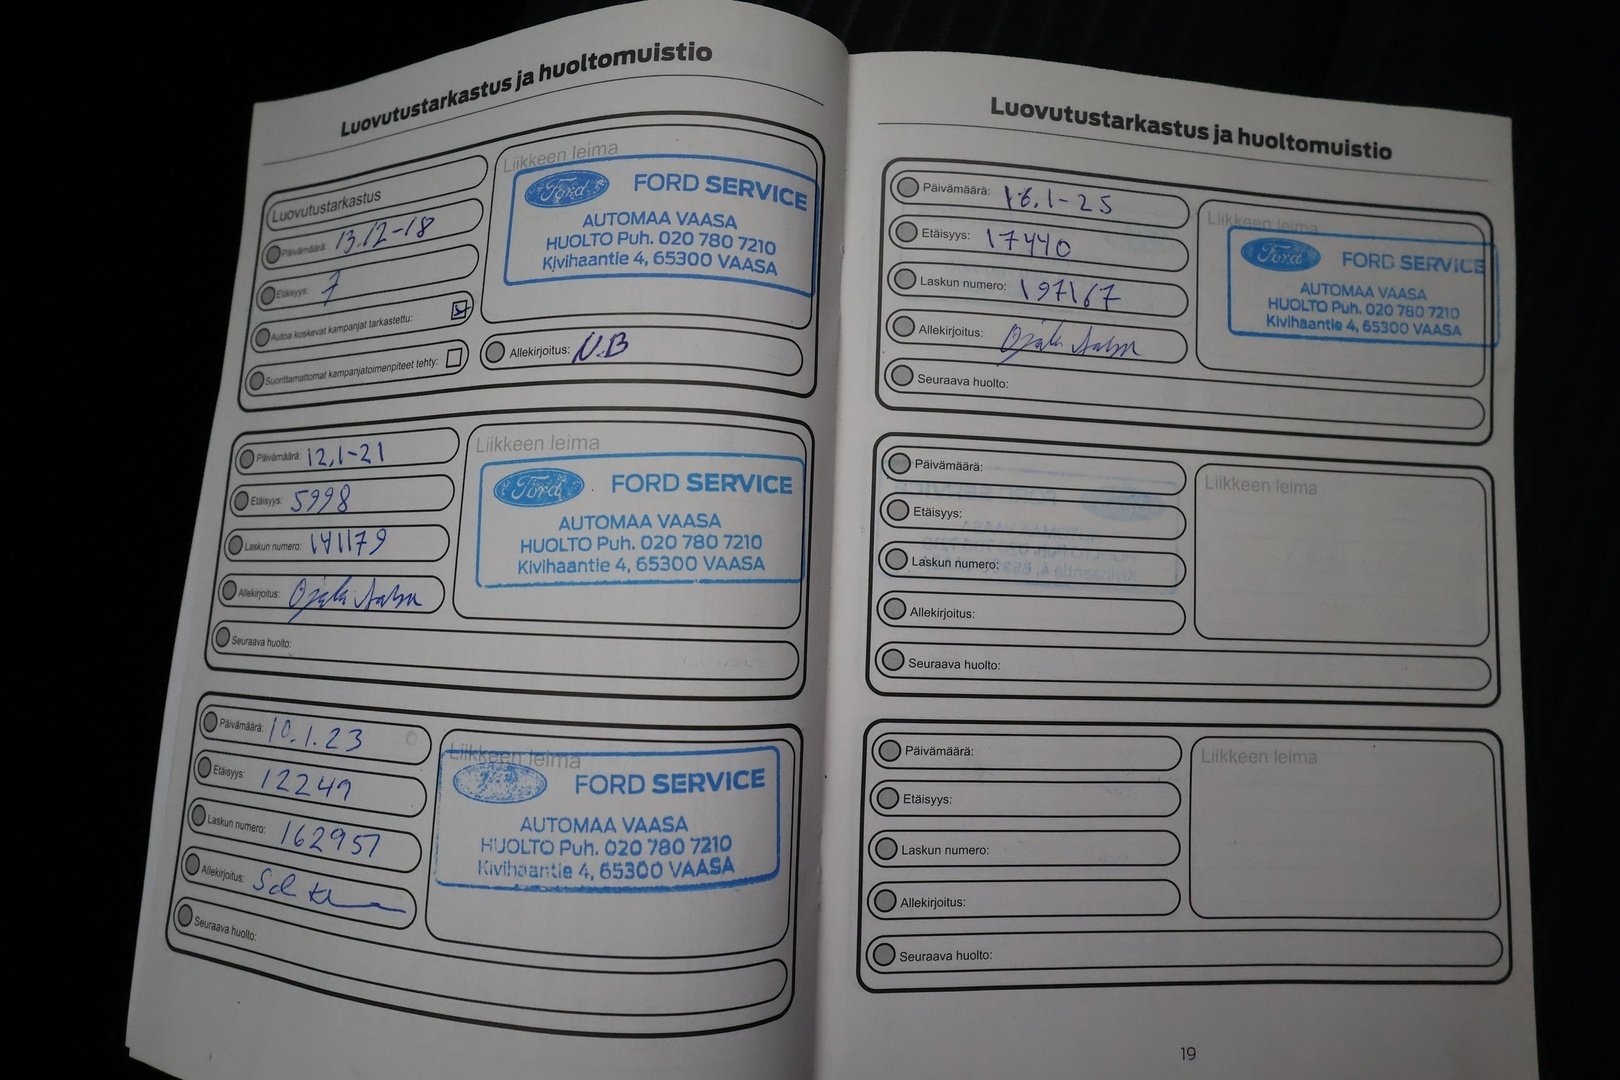 Luovutustarkastus ja huoltomuistio
Luovutustarkastus
Päivämäärä: 13.12-18
Etäisyys: 7
Autoa koskevat kampanjat tarkastettu:
Suorittamattomat kampanjatoimenpiteet tehty:
Liikkeen leima
Ford FORD SERVICE
AUTOMAA VAASA
HUOLTO Puh. 020 780 7210
Kivihaantie 4, 65300 VAASA
Allekirjoitus: N.B
Päivämäärä: 12.1-21
Etäisyys: 5998
Laskun numero: 141179
Allekirjoitus: Ojala
Seuraava huolto:
Liikkeen leima
Ford FORD SERVICE
AUTOMAA VAASA
HUOLTO Puh. 020 780 7210
Kivihaantie 4, 65300 VAASA
Päivämäärä: 10.1.23
Etäisyys: 12249
Laskun numero: 162957
Allekirjoitus:
Seuraava huolto:
Liikkeen leima
FORD SERVICE
AUTOMAA VAASA
HUOLTO Puh. 020 780 7210
Kivihaantie 4, 65300 VAASA
Luovutustarkastus ja huoltomuistio
Päivämäärä: 16.1-25
Etäisyys: 17440
Laskun numero: 197167
Allekirjoitus: Ojala
Seuraava huolto:
Liikkeen leima
Ford FORD SERVICE
AUTOMAA VAASA
HUOLTO Puh. 020 780 7210
Kivihaantie 4, 65300 VAASA
Päivämäärä:
Etäisyys:
Laskun numero:
Allekirjoitus:
Seuraava huolto:
Liikkeen leima
Päivämäärä:
Etäisyys:
Laskun numero:
Allekirjoitus:
Seuraava huolto:
Liikkeen leima
19